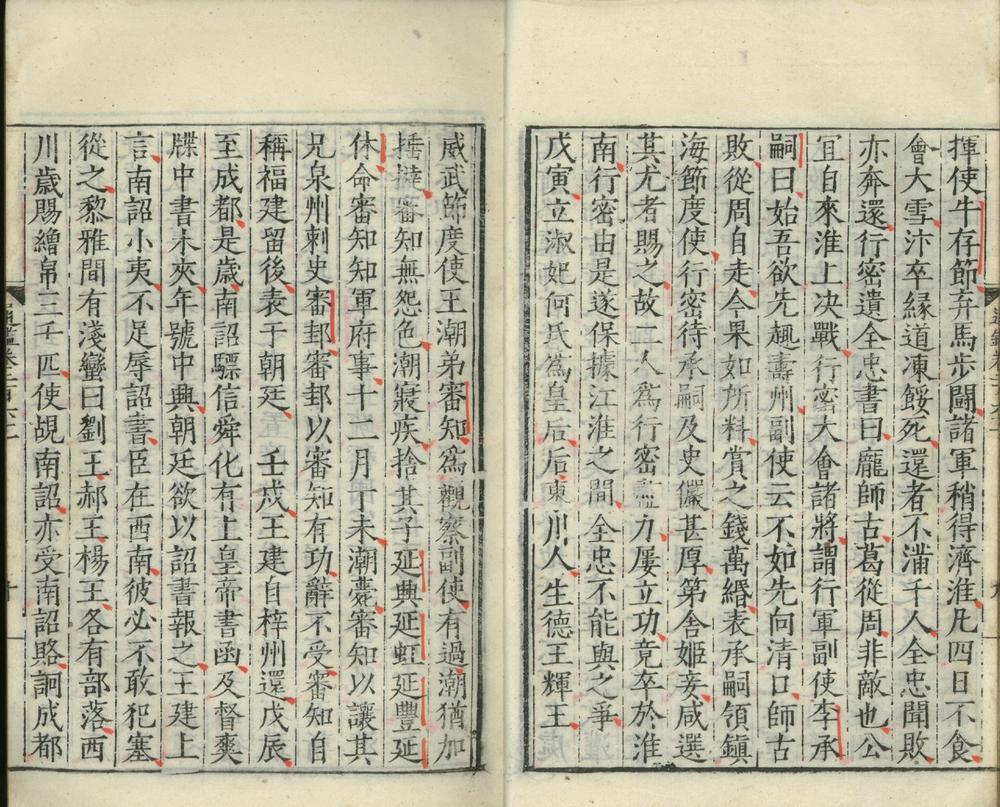 揮使牛存節弃馬步鬪諸軍稍得濟淮凡四日不食
會大雪汴卒緣道凍餒死還者不滿千人全忠聞敗
亦奔還行密遺全忠書曰龎師古葛從周非敵也公
宜自來淮上决戰行密大會諸將謂行軍副使李承
嗣曰始吾欲先趣壽州副使云不如先向清口師古
敗從周自走今果如所料賞之錢萬緡表承嗣領鎮
海節度使行密待承嗣及史儼甚厚第舍姬妾咸選
其尤者賜之故二人爲行密盡力屢立功竟卒於淮
南行密由是遂保據江淮之間全忠不能與之爭
戊寅立淑妃何氏爲皇后后東川人生德王輝王
威武節度使王潮弟審知爲觀察副使有過潮猶加
捶撻審知無怨色潮寢疾捨其子延興延虹延豐延
休命審知知軍府事十二月丁未潮薨審知以讓其
兄泉州刺史審邽審邽以審知有功辭不受審知自
稱福建留後表于朝廷 壬戌王建自梓州還戊辰
至成都是歲南詔驃信舜化有上皇帝書函及督爽
牒中書木夾年號中興朝廷欲以詔書報之王建上
言南詔小夷不足辱詔書臣在西南彼必不敢犯塞
從之黎雅間有淺蠻曰劉王郝王楊王各有部落西
川歲賜繒帛三千匹使覘南詔亦受南詔賂詗成都